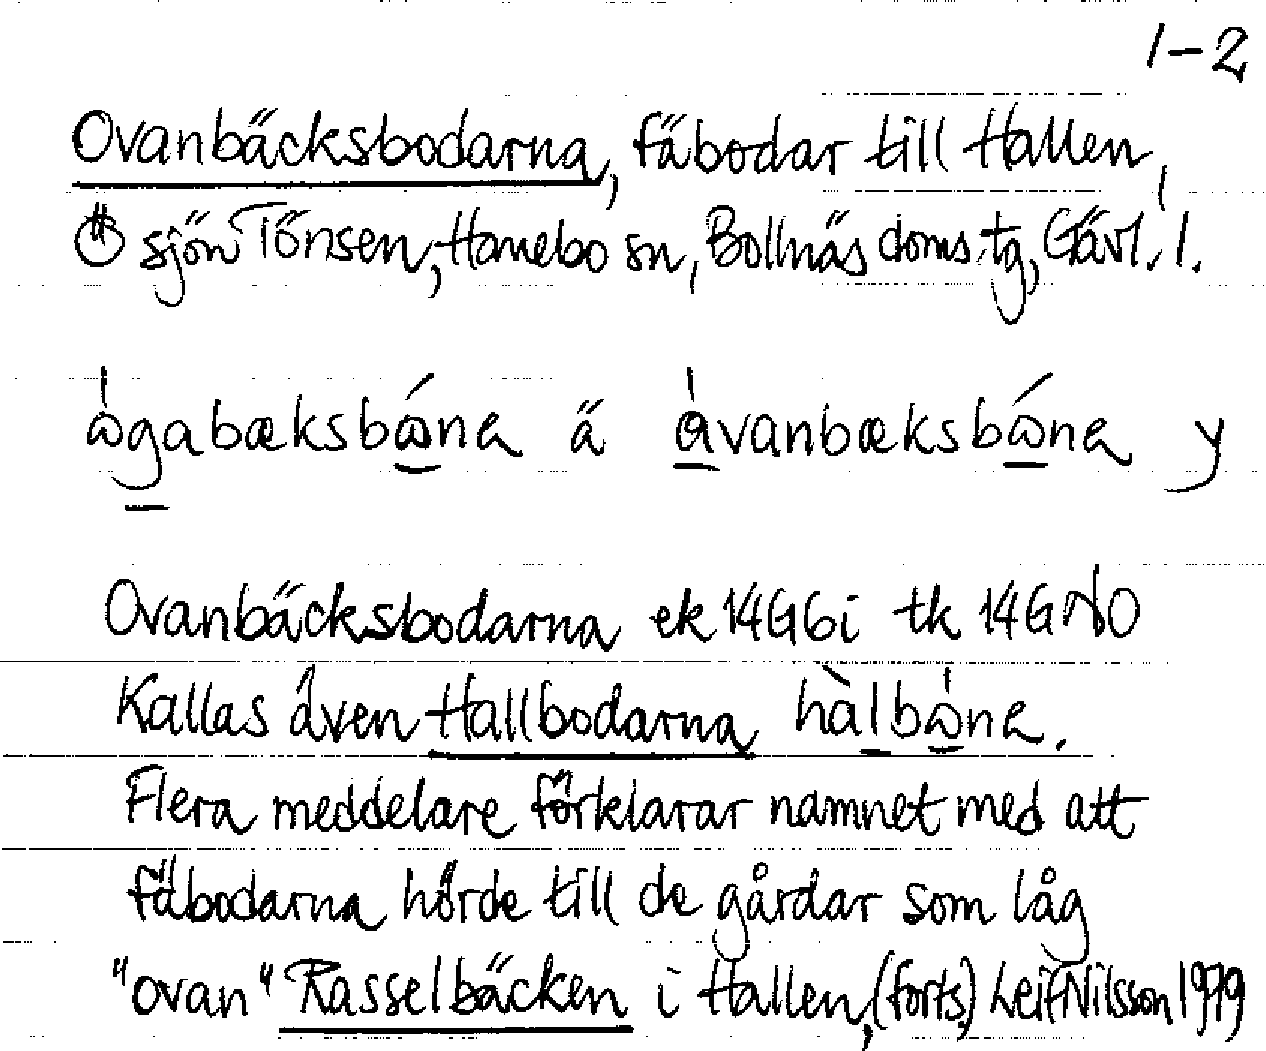 1-2
Ovanbäcksbodarna, fäbodar till Hallen,
Ö sjön Tönsen, Hanebo sn, Bollnäs doms.tg, Gävl. l.
ɷ̀gabæksbɷ́na ä àvanbæksbɷ́na y
Ovanbäcksbodarna ek 14G6i tk 14GNO
Kallas även Hallbodarna hàlbɷ̀na.
Flera meddelare förklarar namnet med att
fäbodarna hörde till de gårdar som låg
"ovan" Rasselbäcken i Hallen, (forts.) Leif Nilsson 1979